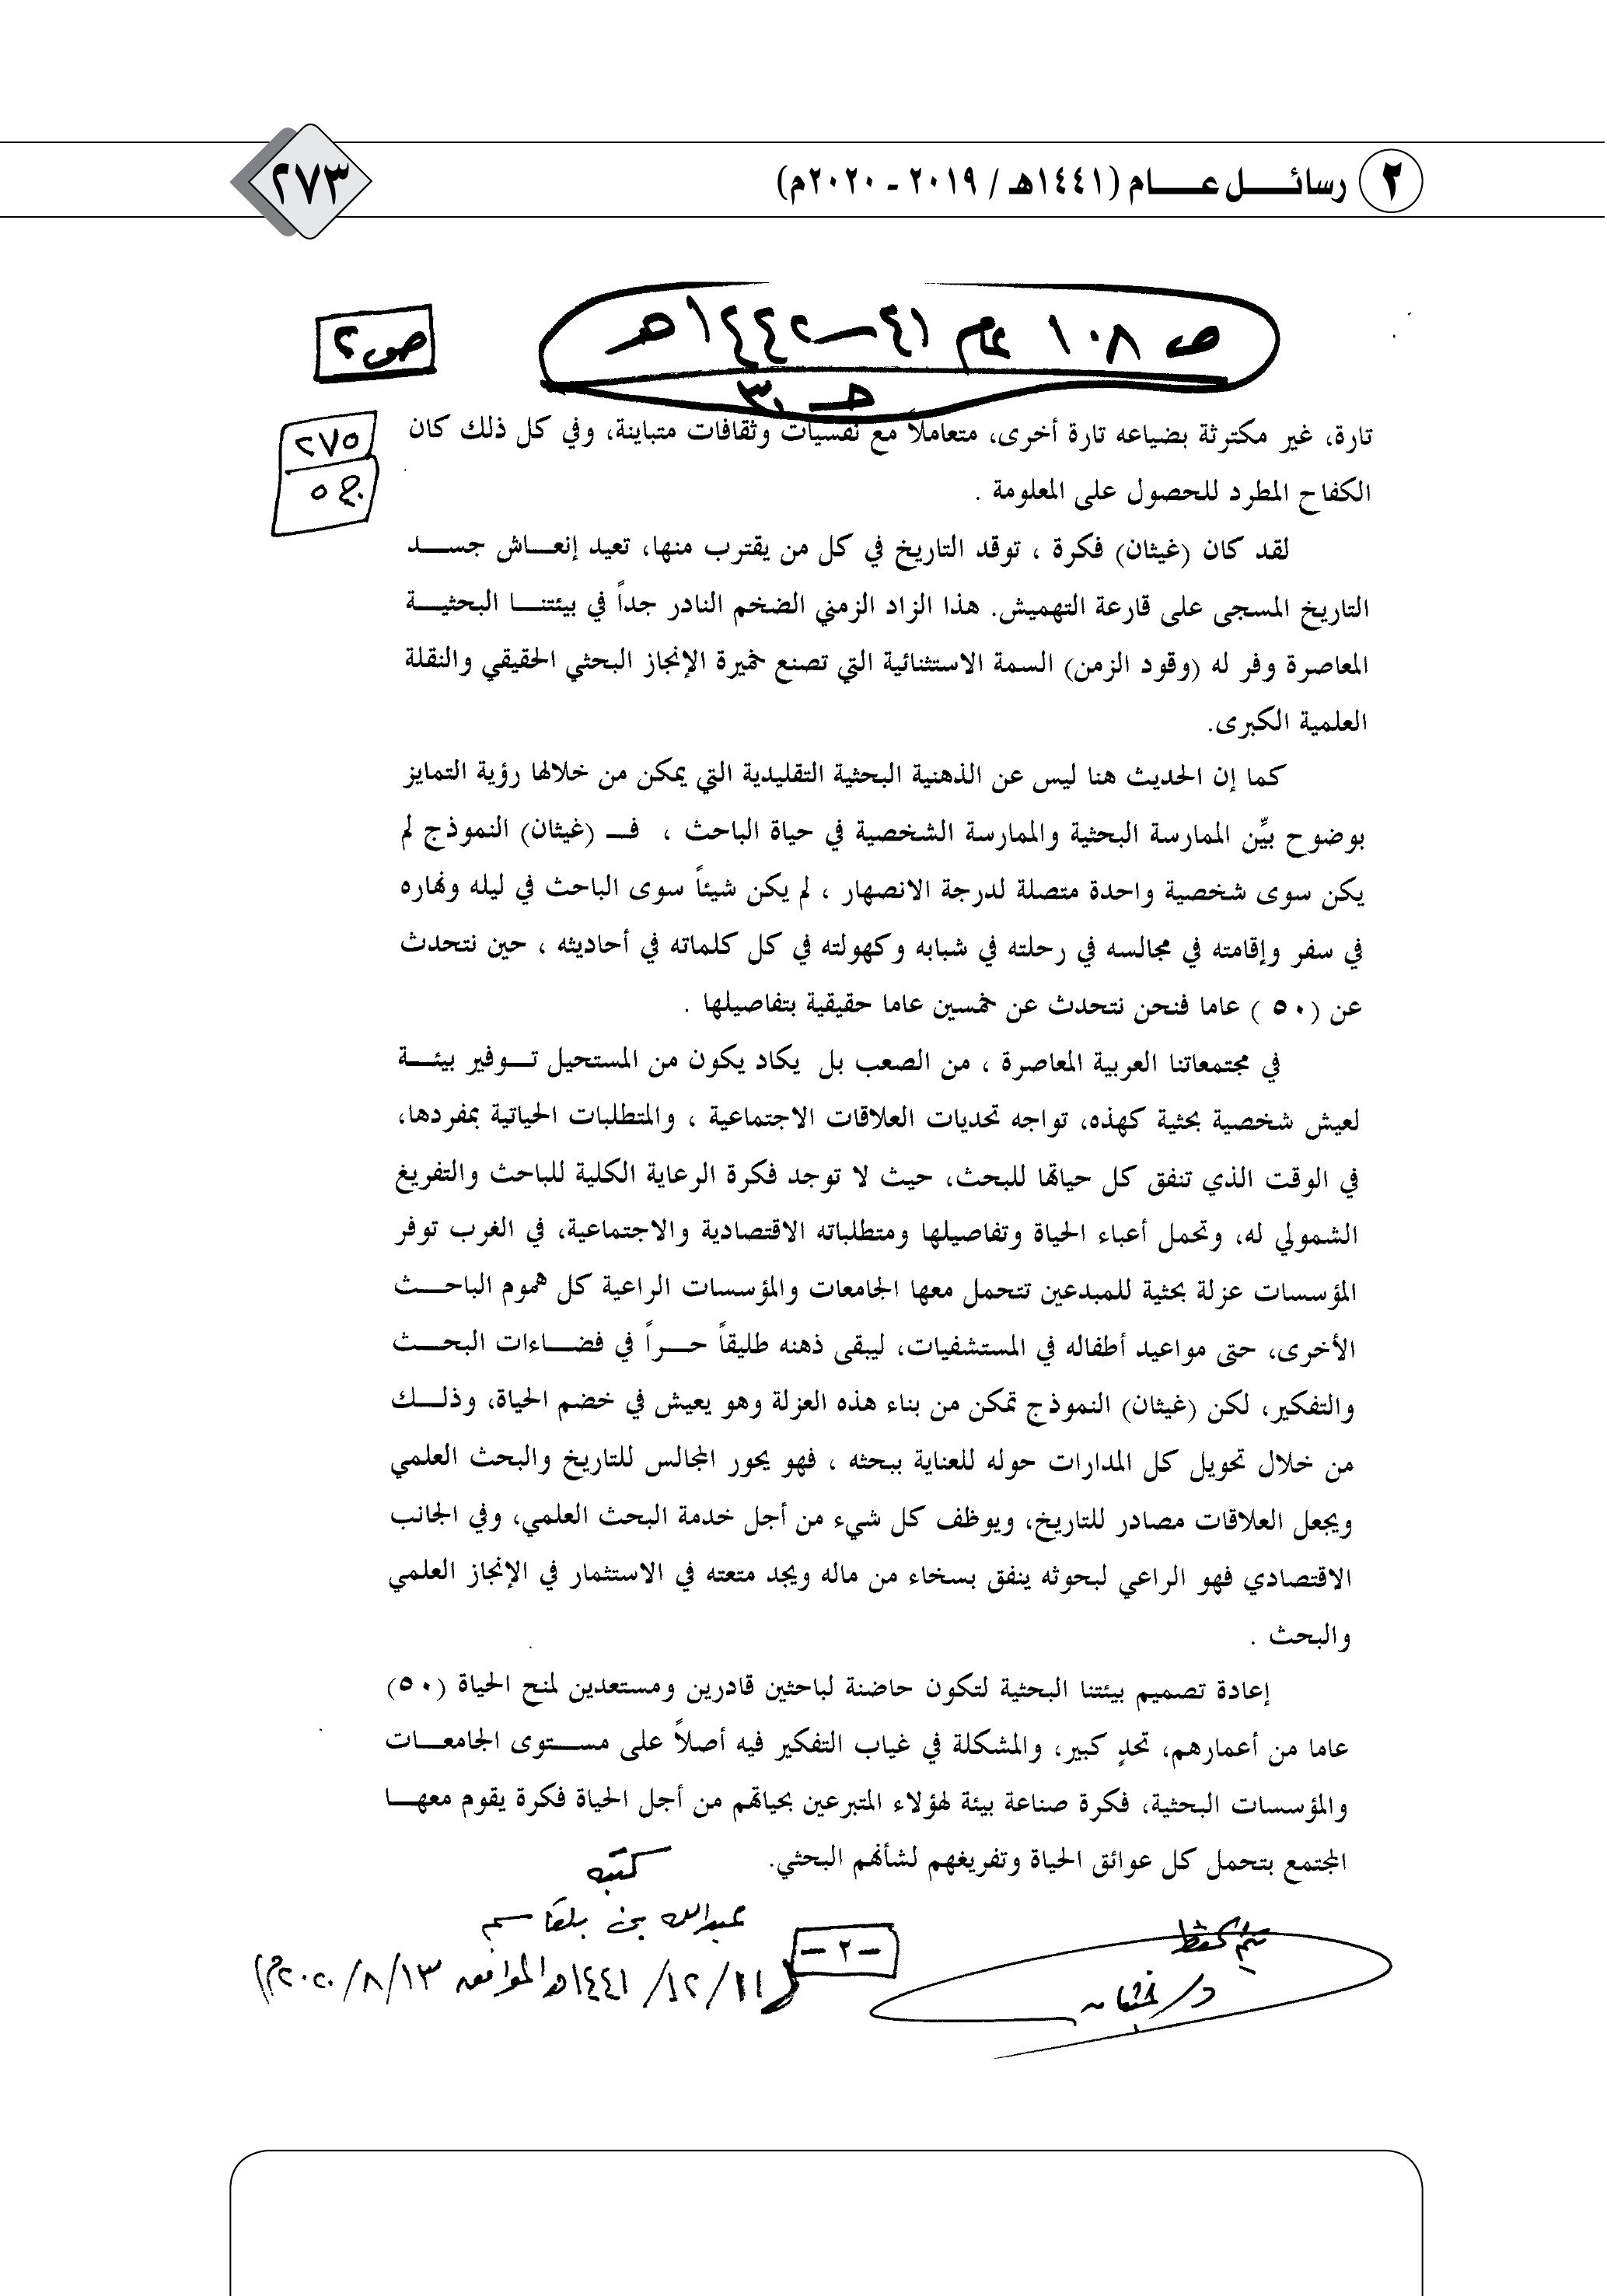 ٢ رسائل عام (١٤٤١هـ / ٢٠١٩ - ٢٠٢٠م)
٢٧٣
ص ١٠٨ عام ٤١-١٤٤٢هـ
ص٢
تارة، غير مكترثة بضياعه تارة أخرى، متعاملاً مع نفسيات وثقافات متباينة، وفي كل ذلك كان
٢٧٥
الكفاح المطرد للحصول على المعلومة .
لقد كان (غيثان) فكرة ، توقد التاريخ في كل من يقترب منها، تعيد إنعاش جسد
التاريخ المسجى على قارعة التهميش. هذا الزاد الزمني الضخم النادر جداً في بيئتنا البحثية
المعاصرة وفر له (وقود الزمن) السمة الاستثنائية التي تصنع خميرة الإنجاز البحثي الحقيقي والنقلة
العلمية الكبرى.
كما إن الحديث هنا ليس عن الذهنية البحثية التقليدية التي يمكن من خلالها رؤية التمايز
بوضوح بيِّن الممارسة البحثية والممارسة الشخصية في حياة الباحث ، فـ (غيثان) النموذج لم
يكن سوى شخصية واحدة متصلة لدرجة الانصهار ، لم يكن شيئاً سوى الباحث في ليله ونهاره
في سفر وإقامته في مجالسه في رحلته في شبابه وكهولته في كل كلماته في أحاديثه ، حين نتحدث
عن (٥٠ ) عاما فنحن نتحدث عن خمسين عاما حقيقية بتفاصيلها .
في مجتمعاتنا العربية المعاصرة ، من الصعب بل يكاد يكون من المستحيل توفير بيئة
لعيش شخصية بحثية كهذه، تواجه تحديات العلاقات الاجتماعية ، والمتطلبات الحياتية بمفردها،
في الوقت الذي تنفق كل حياتها للبحث، حيث لا توجد فكرة الرعاية الكلية للباحث والتفريغ
الشمولي له، وتحمل أعباء الحياة وتفاصيلها ومتطلباته الاقتصادية والاجتماعية، في الغرب توفر
المؤسسات عزلة بحثية للمبدعين تتحمل معها الجامعات والمؤسسات الراعية كل هموم الباحث
الأخرى، حتى مواعيد أطفاله في المستشفيات، ليبقى ذهنه طليقاً حراً في فضاءات البحث
والتفكير، لكن (غيثان) النموذج تمكن من بناء هذه العزلة وهو يعيش في خضم الحياة، وذلك
من خلال تحويل كل المدارات حوله للعناية ببحثه ، فهو يحور المجالس للتاريخ والبحث العلمي
ويجعل العلاقات مصادر للتاريخ، ويوظف كل شيء من أجل خدمة البحث العلمي، وفي الجانب
الاقتصادي فهو الراعي لبحوثه ينفق بسخاء من ماله ويجد متعته في الاستثمار في الإنجاز العلمي
والبحث .
إعادة تصميم بيئتنا البحثية لتكون حاضنة لباحثين قادرين ومستعدين لمنح الحياة (٥٠)
عاما من أعمارهم، تحدٍ كبير، والمشكلة في غياب التفكير فيه أصلاً على مستوى الجامعات
والمؤسسات البحثية، فكرة صناعة بيئة لهؤلاء المتبرعين بحياتهم من أجل الحياة فكرة يقوم معها
المجتمع بتحمل كل عوائق الحياة وتفريغهم لشأنهم البحثي.
كتبه
عبدالله بن بلقاسم
- ٢ -
(١٤٤١/١٢/٢١هـ الموافق ٢٠٢٠/٨/١٣م)